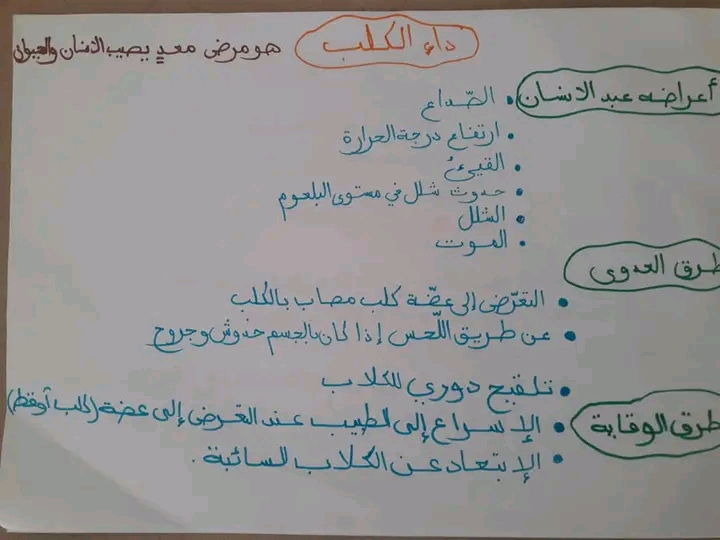 داء الكلب هو مرض معدٍ يصيب الانسان والحيوان
أعراضه عند الانسان
• الصّداع
• ارتفاع درجة الحرارة
• القيئُ
• حدوث شلل في مستوى البلعوم
• الشلل
• الموت
طرق العدوى
• التعرّض إلى عضّة كلب مصاب بالكلب
• عن طريق اللّحس إذا كان بالجسم خدوش وجروح
طرق الوقاية
• تلقيح دوري للكلاب
• الإسراع إلى الطبيب عند التعرض إلى عضة (كلب أو قط)
• الإبتعاد عن الكلاب السائبة.